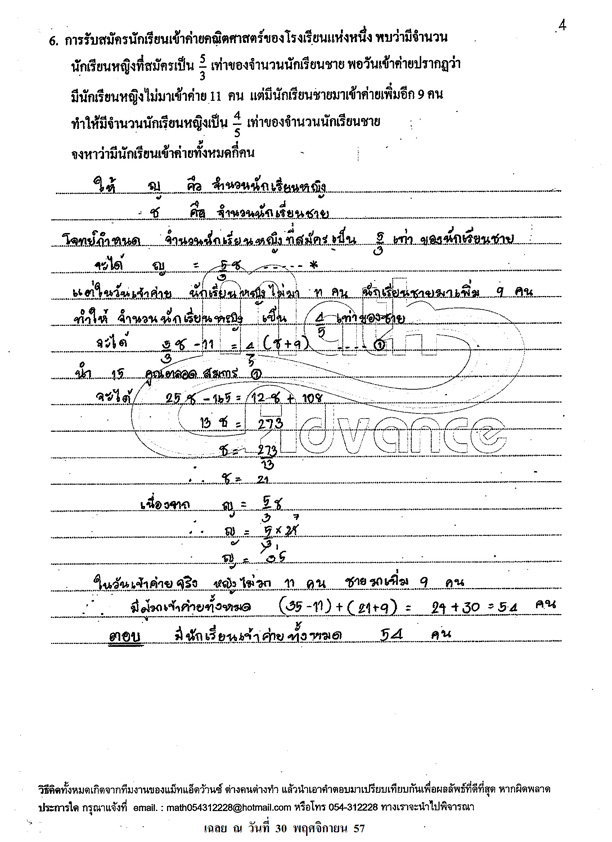 4
6. การรับสมัครนักเรียนเข้าค่ายคณิตศาสตร์ของโรงเรียนแห่งหนึ่ง พบว่ามีจำนวน
นักเรียนหญิงที่สมัครเป็น 5/3 เท่าของจำนวนนักเรียนชาย พอวันเข้าค่ายปรากฏว่า
มีนักเรียนหญิงไม่มาเข้าค่าย 11 คน แต่มีนักเรียนชายมาเข้าค่ายเพิ่มอีก 9 คน
ทำให้มีจำนวนนักเรียนหญิงเป็น 4/5 เท่าของจำนวนนักเรียนชาย
จงหาว่ามีนักเรียนเข้าค่ายทั้งหมดกี่คน
ให้ ญ คือ จำนวนนักเรียนหญิง
ช คือ จำนวนนักเรียนชาย
โจทย์กำหนด จำนวนนักเรียนหญิงที่สมัครเป็น 5/3 เท่า ของนักเรียนชาย
จะได้ ญ = 5/3 ช ----- *
แต่ในวันเข้าค่าย นักเรียนหญิงไม่มา 11 คน นักเรียนชายมาเพิ่ม 9 คน
ทำให้ จำนวนนักเรียนหญิง เป็น 4/5 เท่าของชาย
จะได้ 5/3 ช - 11 = 4/5 (ช + 9) ---- ①
นำ 15 คูณตลอด สมการ ①
จะได้ 25ช - 165 = 12ช + 108
13 ช = 273
ช = 273/13
∴ ช = 21
เนื่องจาก ญ = 5/3 ช
∴ ญ = 5/3 × 21 7
∴ ญ = 35
ในวันเข้าค่ายจริง หญิงไม่มา 11 คน ชายมาเพิ่ม 9 คน
มีผู้มาเข้าค่ายทั้งหมด (35-11) + (21+9) = 24 + 30 = 54 คน
ตอบ มีนักเรียนเข้าค่ายทั้งหมด 54 คน
Math
Advance
วิธีคิดทั้งหมดเกิดจากทีมงานของแม็ทแอ็ดว้านซ์ ต่างคนต่างทำ แล้วนำเอาคำตอบมาเปรียบเทียบกันเพื่อผลลัพธ์ที่ดีที่สุด หากผิดพลาด
ประการใด กรุณาแจ้งที่ email. : math054312228@hotmail.com หรือโทร 054-312228 ทางเราจะนำไปพิจารณา
เฉลย ณ วันที่ 30 พฤศจิกายน 57